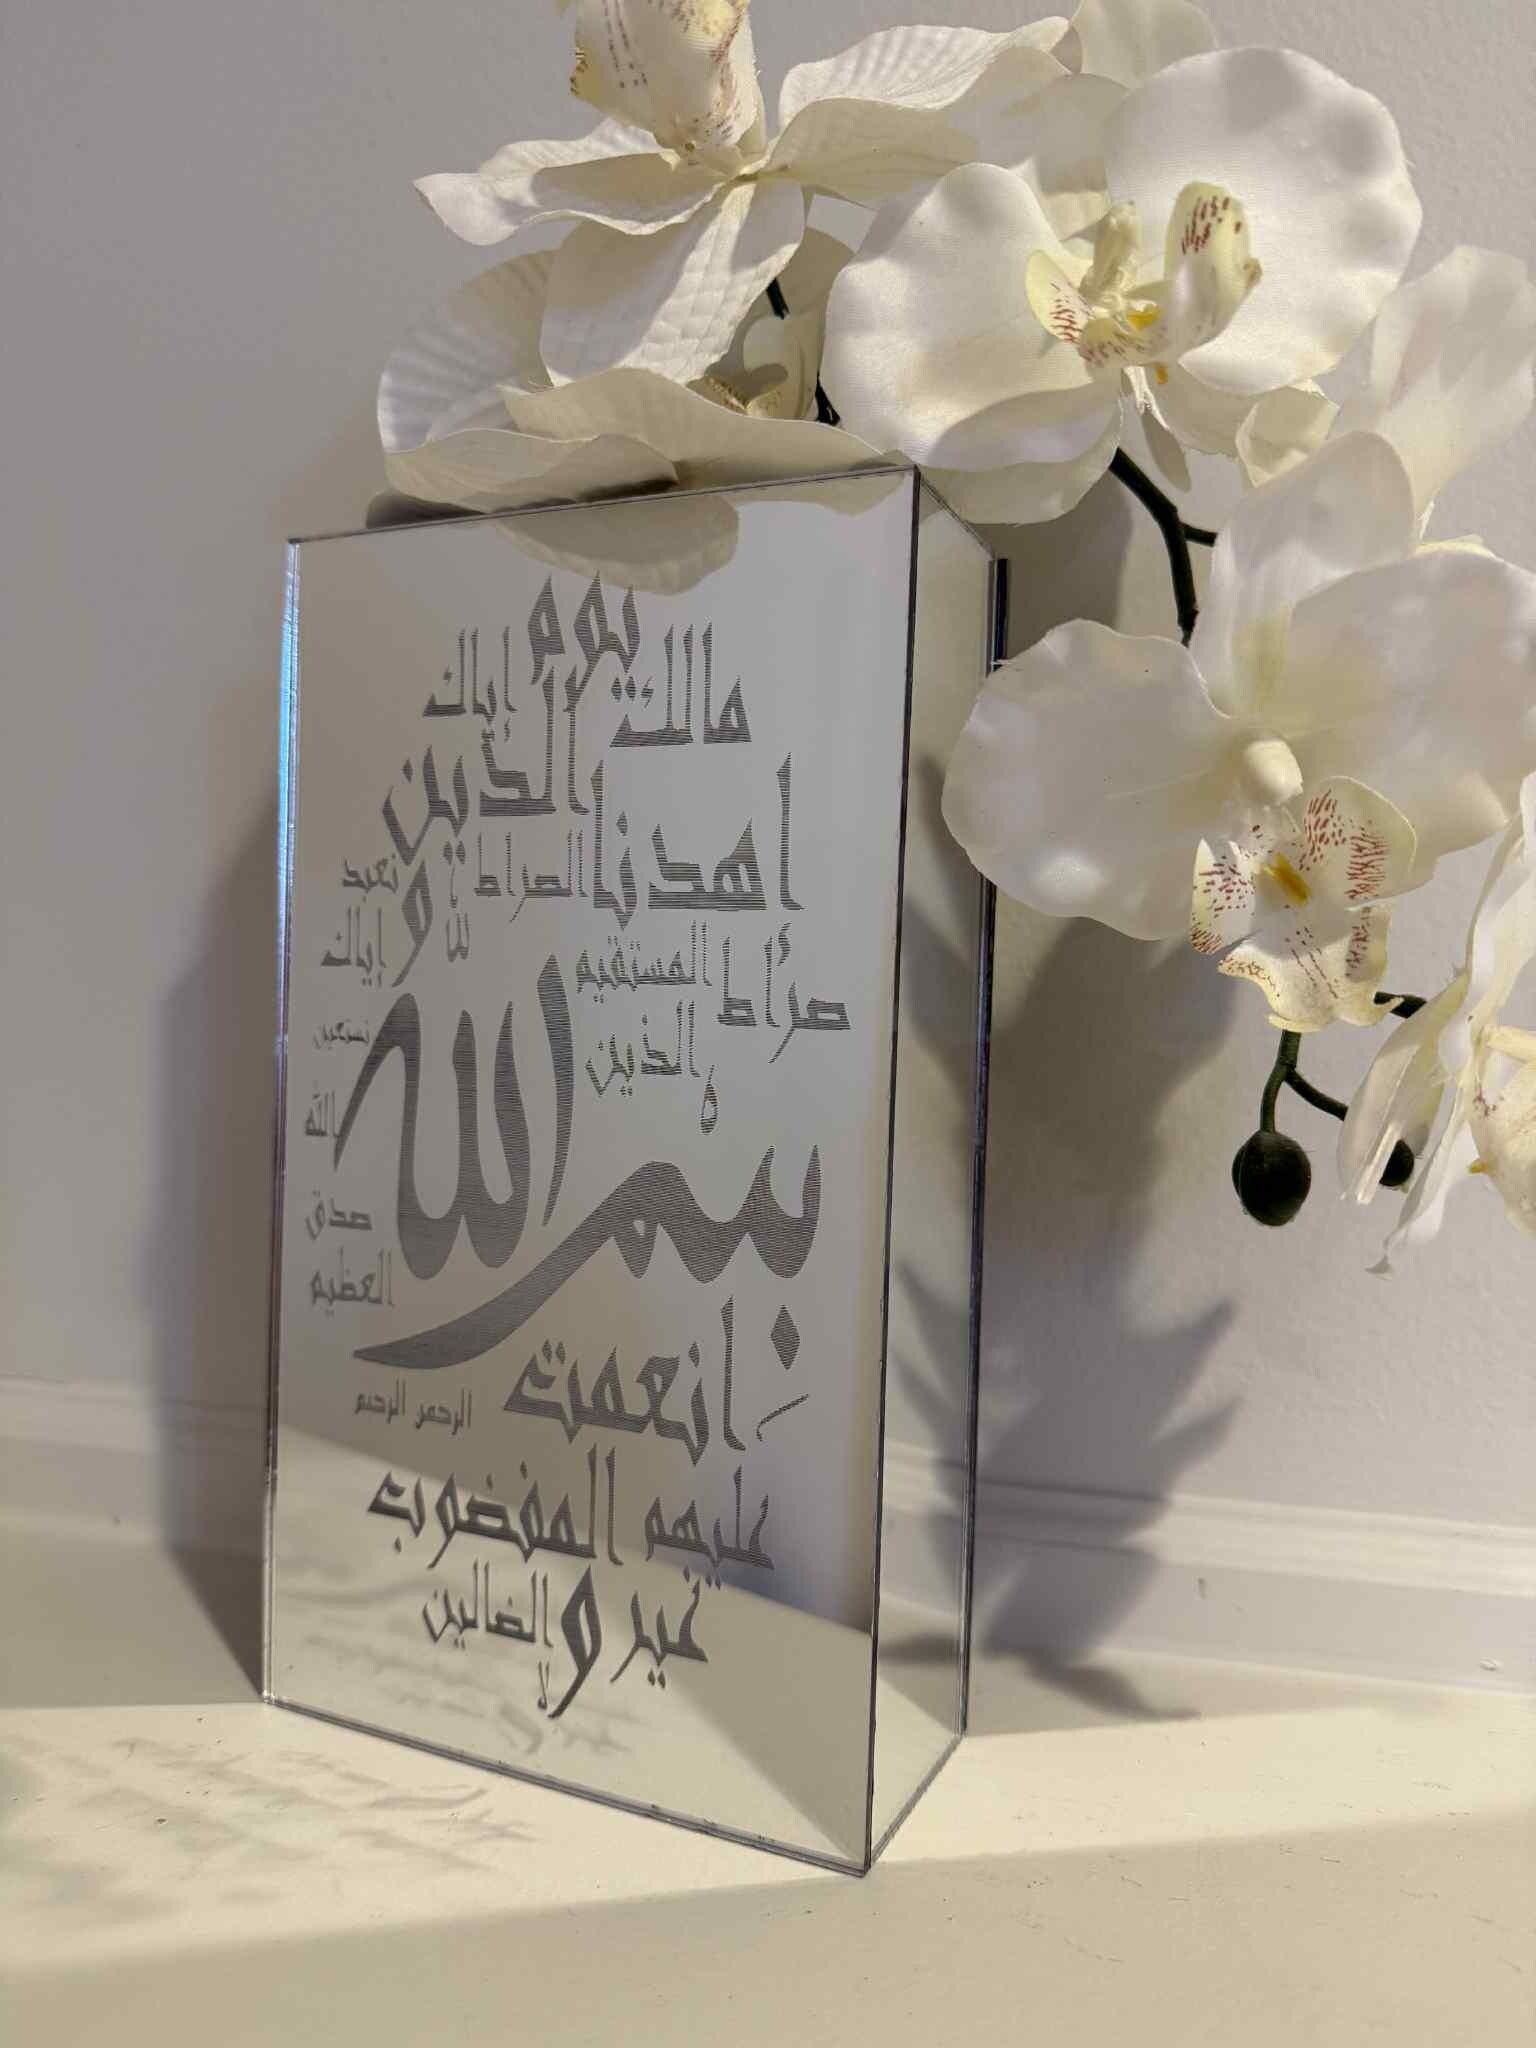 يوم
مالك
إياك
الدين
اهدنا
الصراط
و
نعبد
لله
إياك
المستقيم
صراط
الذين
نستعين
بسم الله
الله
صدق
العظيم
انعمت
الرحمن الرحيم
عليهم
المغضوب
غير
و
الضالين
لا